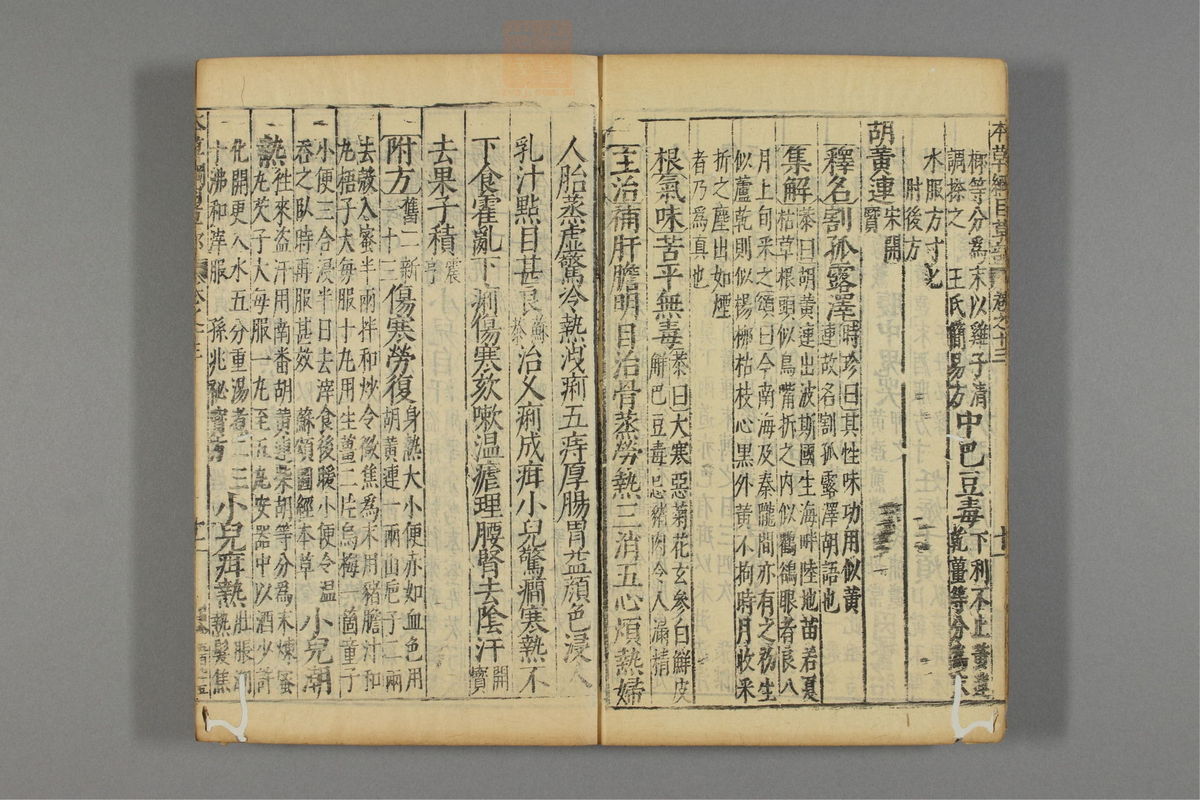 榔等分為末以雞子清
調搽之 王氏簡易方 中巴豆毒 下利不止黃連
乾薑等分為末
水服方寸匕
肘後方
胡黃連 宋開寶
釋名 割孤露澤 時珍曰其性味功用似黃
連故名割孤露澤胡語也
集解 恭曰胡黃連出波斯國生海畔陸地苗若夏
枯草根頭似鳥嘴折之內似鸜鵒眼者良八
月上旬采之頌曰今南海及秦隴間亦有之初生
似蘆乾則似楊柳枯枝心黑外黃不拘時月收采
折之塵出如煙
者乃為真也
根氣味苦平無毒 恭曰大寒惡菊花玄參白鮮皮
解巴豆毒忌豬肉令人漏精
主治補肝膽明目治骨蒸勞熱三消五心煩熱婦
人胎蒸虛驚冷熱洩痢五痔厚腸胃益顏色浸人
乳汁點目甚良 蘇恭 治久痢成疳小兒驚癇寒熱不
下食霍亂下痢傷寒欬嗽溫瘧理腰腎去陰汗 開寶
去果子積 震亨
附方 舊二新十三 傷寒勞復 身熱大小便赤如血色用
胡黃連一兩山巵子二兩
去殼入蜜半兩拌和炒令微焦為末用豬膽汁和
丸梧子大每服十丸用生薑二片烏梅一箇童子
小便三合浸半日去滓食後暖小便令溫
吞之臥時再服甚效 蘇頌圖經本草 小兒潮
熱 往來盜汗用南番胡黃連柴胡等分為末煉蜜
丸芡子大每服一丸至五丸安器中以酒少許
化開更入水五分重湯煮二三
十沸和滓服 孫兆秘寶方 小兒疳熱 肚脹潮
熱髮焦